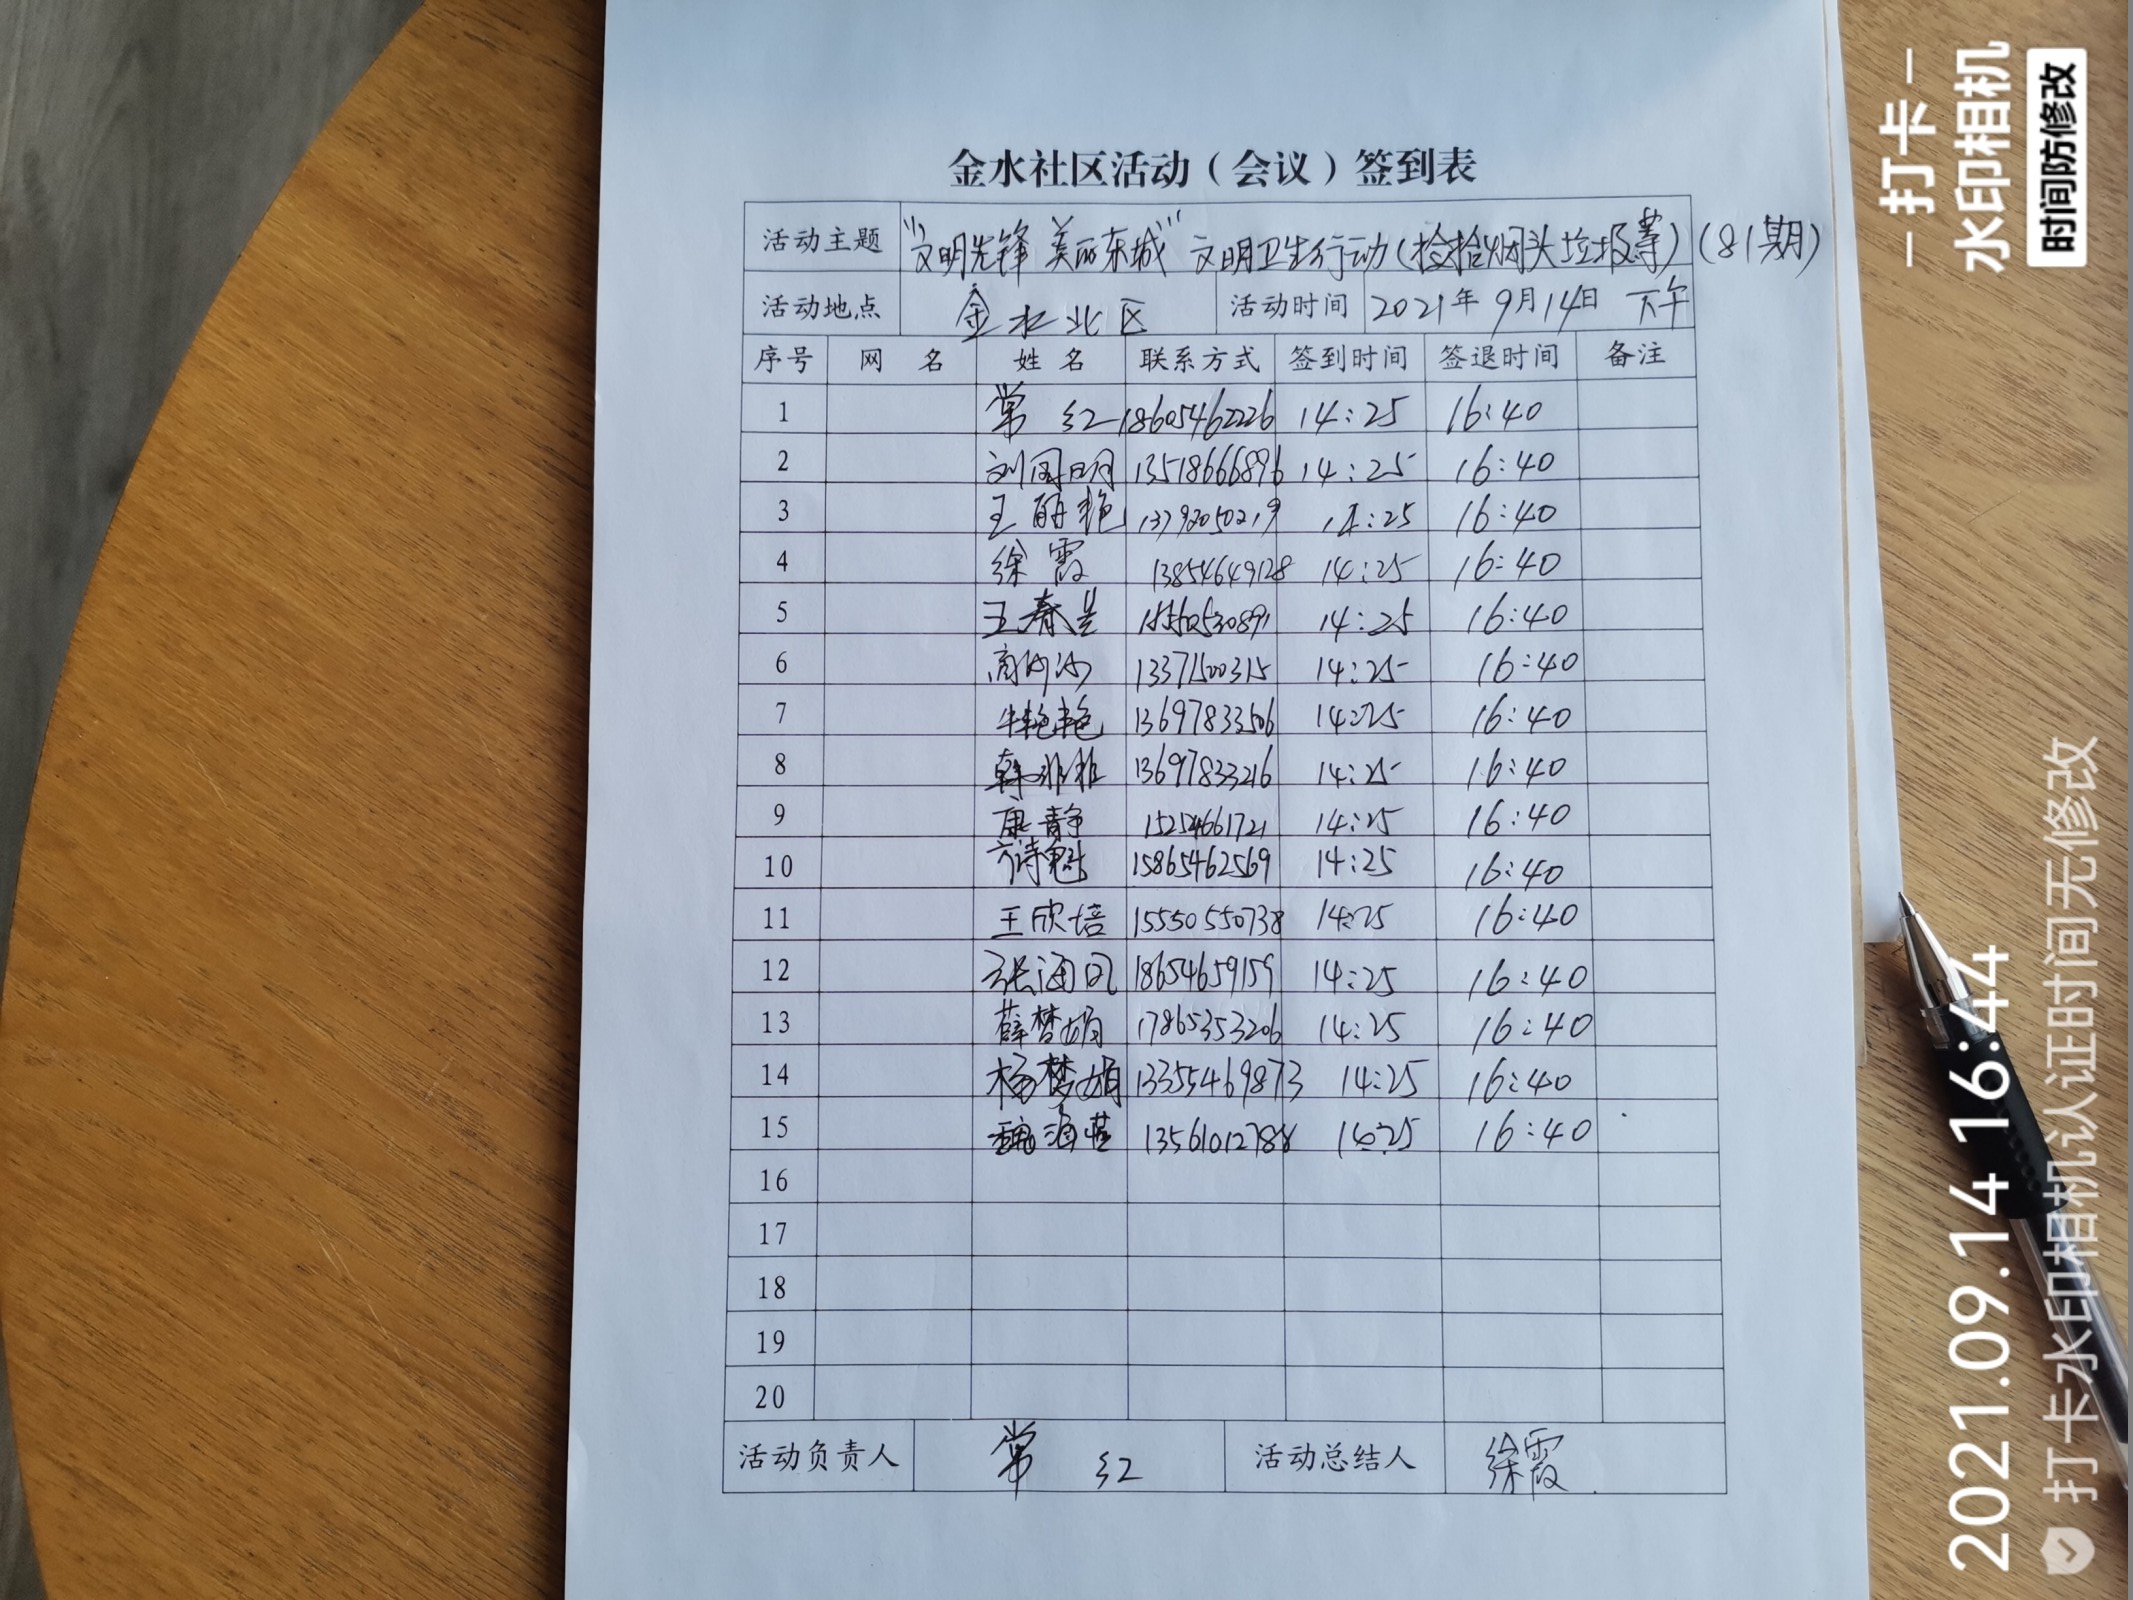 金水社区活动（会议）签到表
活动主题 "文明先锋 美丽东城" 文明卫生行动(捡拾烟头垃圾等)(81期)
活动地点 金水北区 活动时间 2021年9月14日 下午
序号 网 名 姓 名 联系方式 签到时间 签退时间 备注
1 常 红 18605462226 14:25 16:40
2 刘国明 13518666896 14:25 16:40
3 王丽艳 13792050219 14:25 16:40
4 徐霞 13854649128 14:25 16:40
5 王春 14:25 16:40
6 13371500315 14:25 16:40
7 牛艳艳 13697833506 14:25 16:40
8 韩雅雅 13697833216 14:25 16:40
9 康静 15254661721 14:25 16:40
10 诗魁 15865462569 14:25 16:40
11 王欣培 15550550738 14:25 16:40
12 张海凤 18654659159 14:25 16:40
13 薛梦娟 17865353206 14:25 16:40
14 杨梦娟 13355469873 14:25 16:40
15 魏海莲 13561012788 14:25 16:40
16
17
18
19
20
活动负责人 常 红 活动总结人 徐霞
打卡
水印相机
时间防修改
2021.09.14 16:44
打卡水印相机认证时间无修改